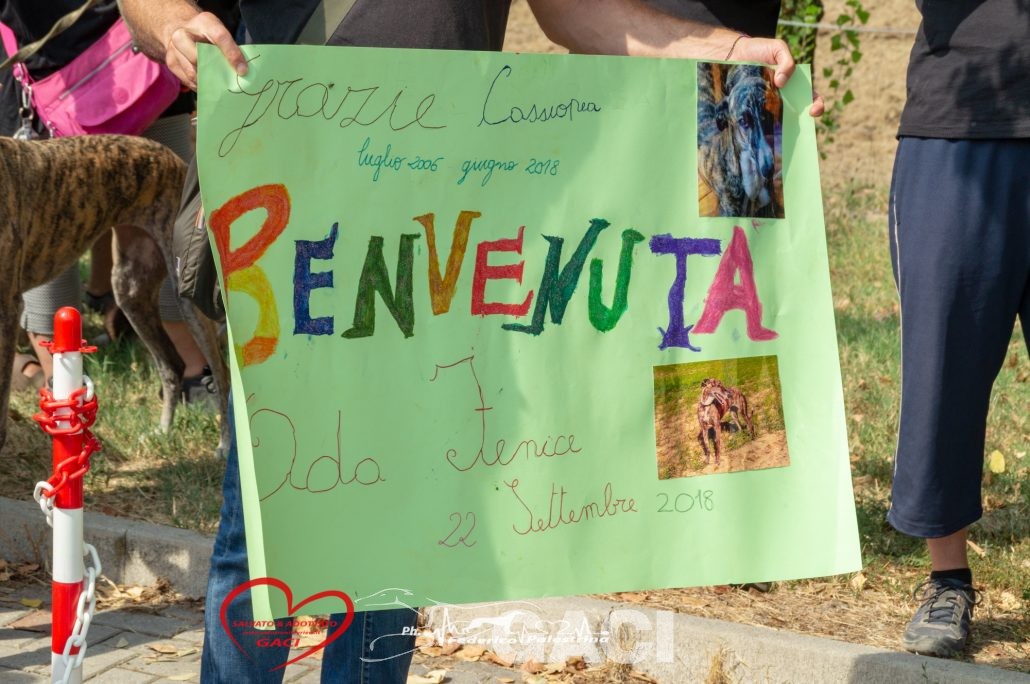 Grazie Cassiopea
luglio 2006 giugno 2018
BENVENUTA
Ada Fenice
22 Settembre 2018
SALVATO & ADOTTATO
GACI
Ph. Federico Palestina
GACI